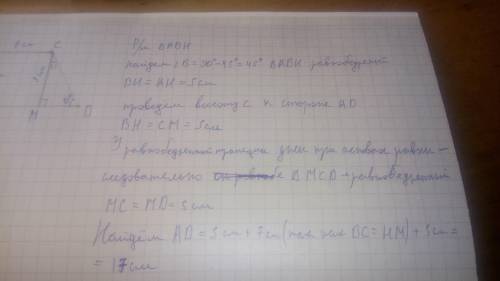 C
M
D
Р/м ΔABH
найдем ∠B = 90°-45° = 45° ΔABH равнобедренный
BH = AH = 5см
проведем высоту C к стороне AD
BH = CM = 5см
У равнобедренной трапеции углы при основан равны -
следовательно ΔMCD - равнобедренный
MC = MD = 5см
Найдём AD = 5см + 7см (так как BC = HM) + 5см =
= 17см